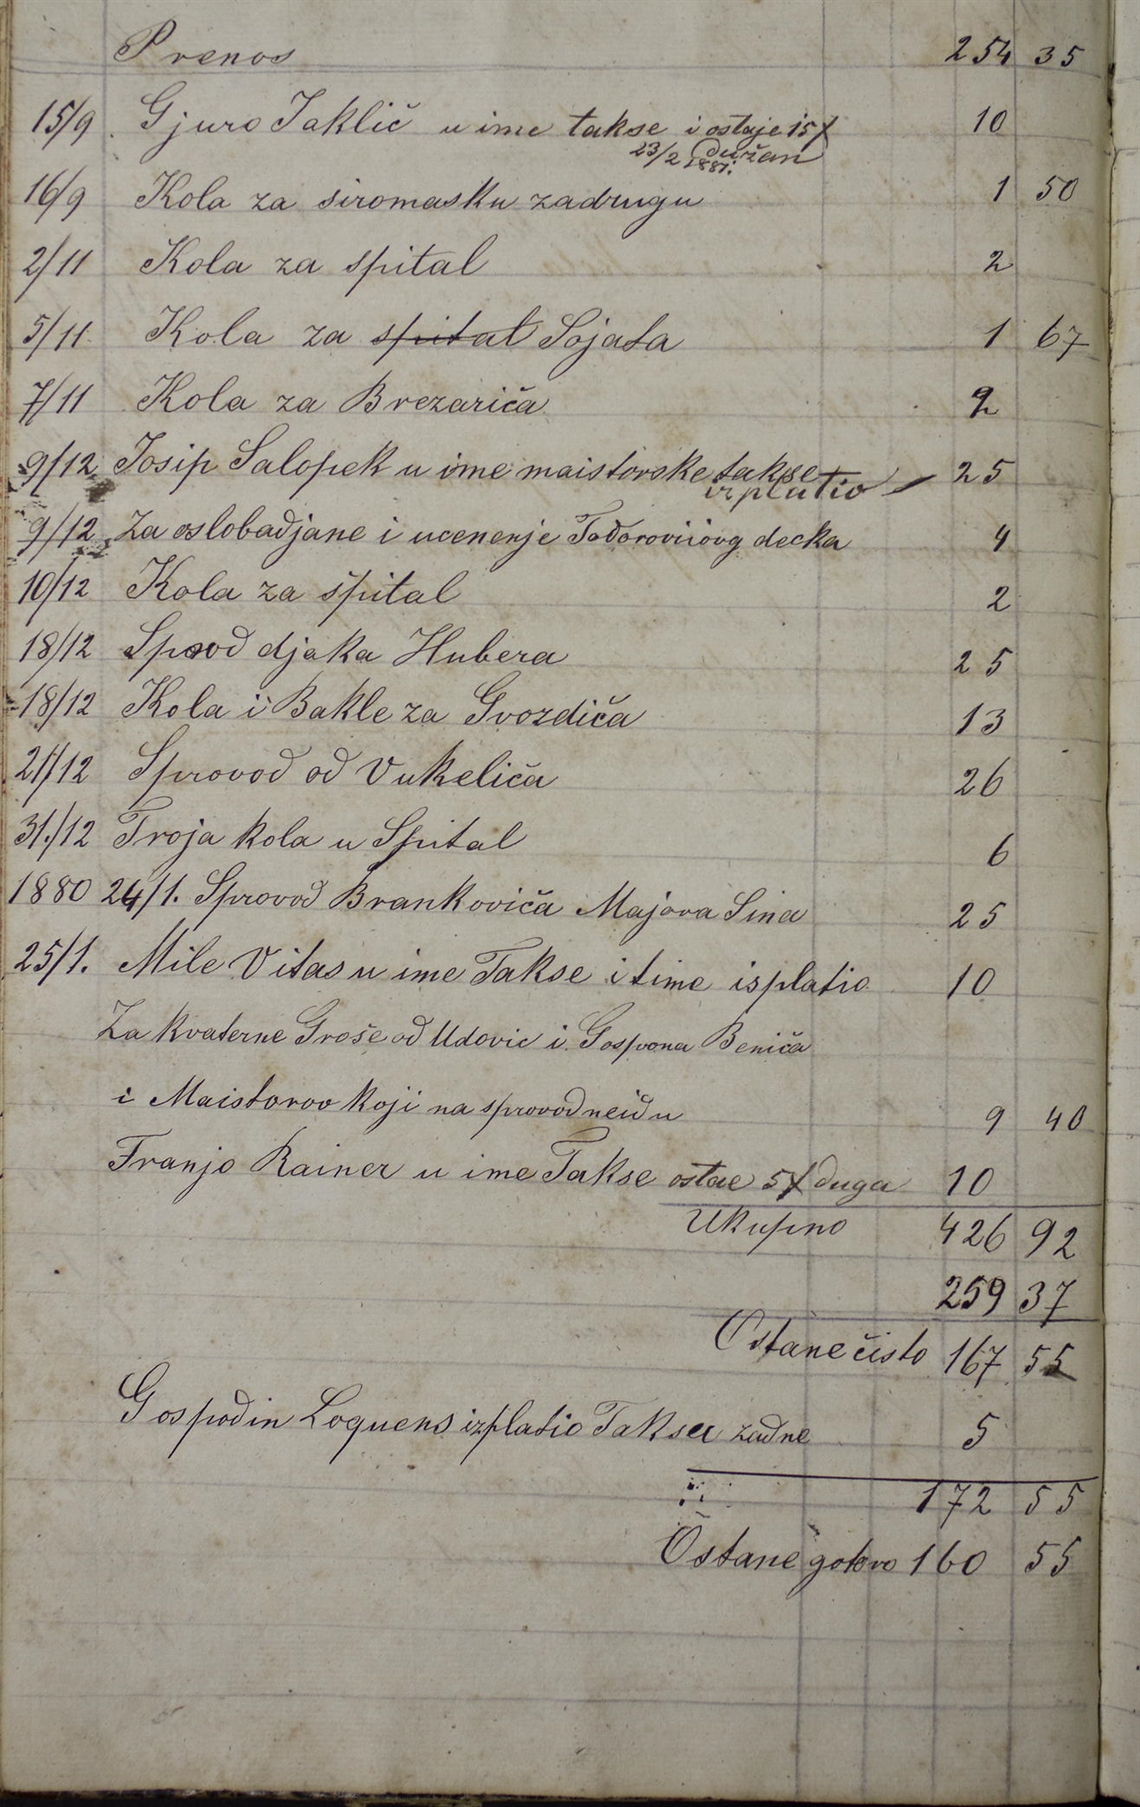 Prenos 254 35
15/9 Gjuro Jaklić u ime takse i ostaje 15 f 10
23/2 1881. dužan
16/9 Kola za siromasku zadrugu 1 50
2/11 Kola za spital 2
5/11 Kola za spital Sojata 1 67
7/11 Kola za Brezarića 2
9/12 Josip Salopek u ime maistorske takse 25
izplatio
9/12 Za oslobadjane i ucenenje decka 4
10/12 Kola za špital 2
18/12 Sprovod djaka Hubera 25
18/12 Kola i Bakle za Gvozdića 13
21/12 Sprovod od Vukelića 26
31./12 Troja kola u Spital 6
1880 24/1. Sprovod Brankovića Majora Sina 25
25/1. Mile Vitas u ime Takse i time isplatio 10
Za kvaterne Groše od Udovic i Benića
i Maistorov koji na sprovod neidu 9 40
Franjo Rainer u ime Takse ostae 5 f duga 10
Ukupno 426 92
259 37
Ostane čisto 167 55
Gospodin Loquens izplatio Taksu zadne 5
172 55
Ostane gotovo 160 55